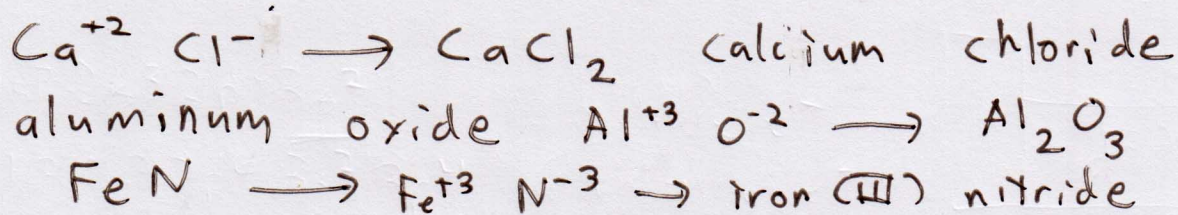 Ca⁺² Cl⁻ → CaCl₂ calcium chloride
aluminum oxide Al⁺³ O⁻² → Al₂O₃
FeN → Fe⁺³ N⁻³ → iron (III) nitride